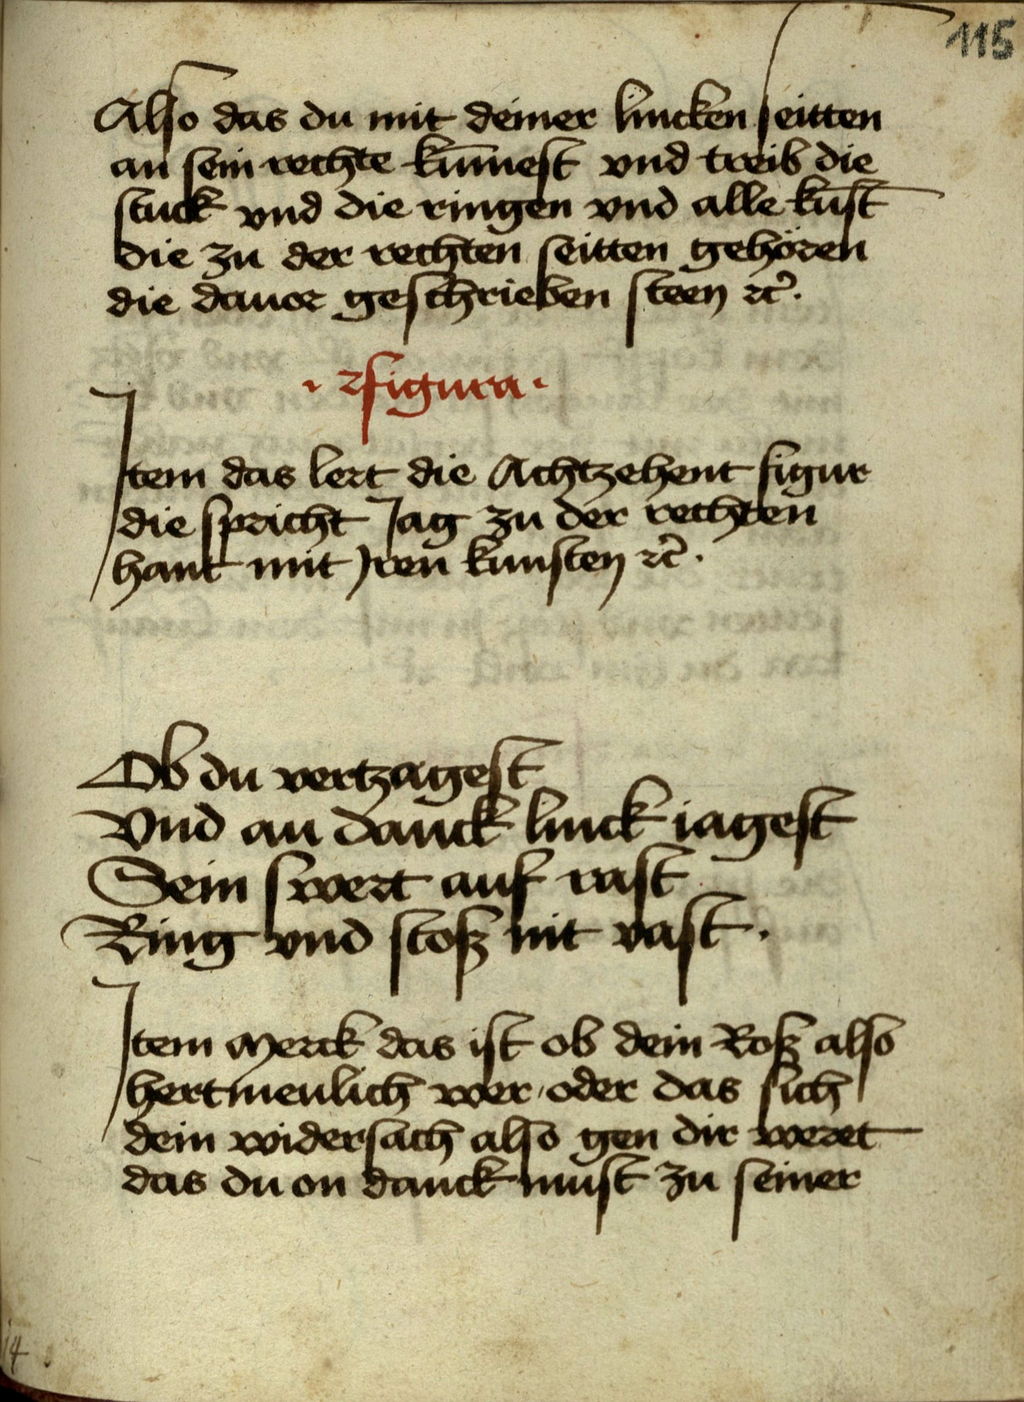 115
Also das du mit deiner lincken seitten
an sein rechte kum̄est vnd treib die
stuck vnd die ringen vnd alle kūst
die zu der rechten seitten gehören
die dauor geschrieben steen ꝛc̄.
· figura ·
Item das lert die Achtzehent figur
die spricht Jag zu der rechten
hant mit Jren kunsten ꝛc̄.
Ob du vertzagest
Vnd an danck linck iagest
Sein swert auf rast
Ring vnd stoß nit vast.
Item Merck das ist ob dein Roß also
hertmeulich wer / oder das sich
dein widersach also gen dir weret
das du on danck must zu seiner
14